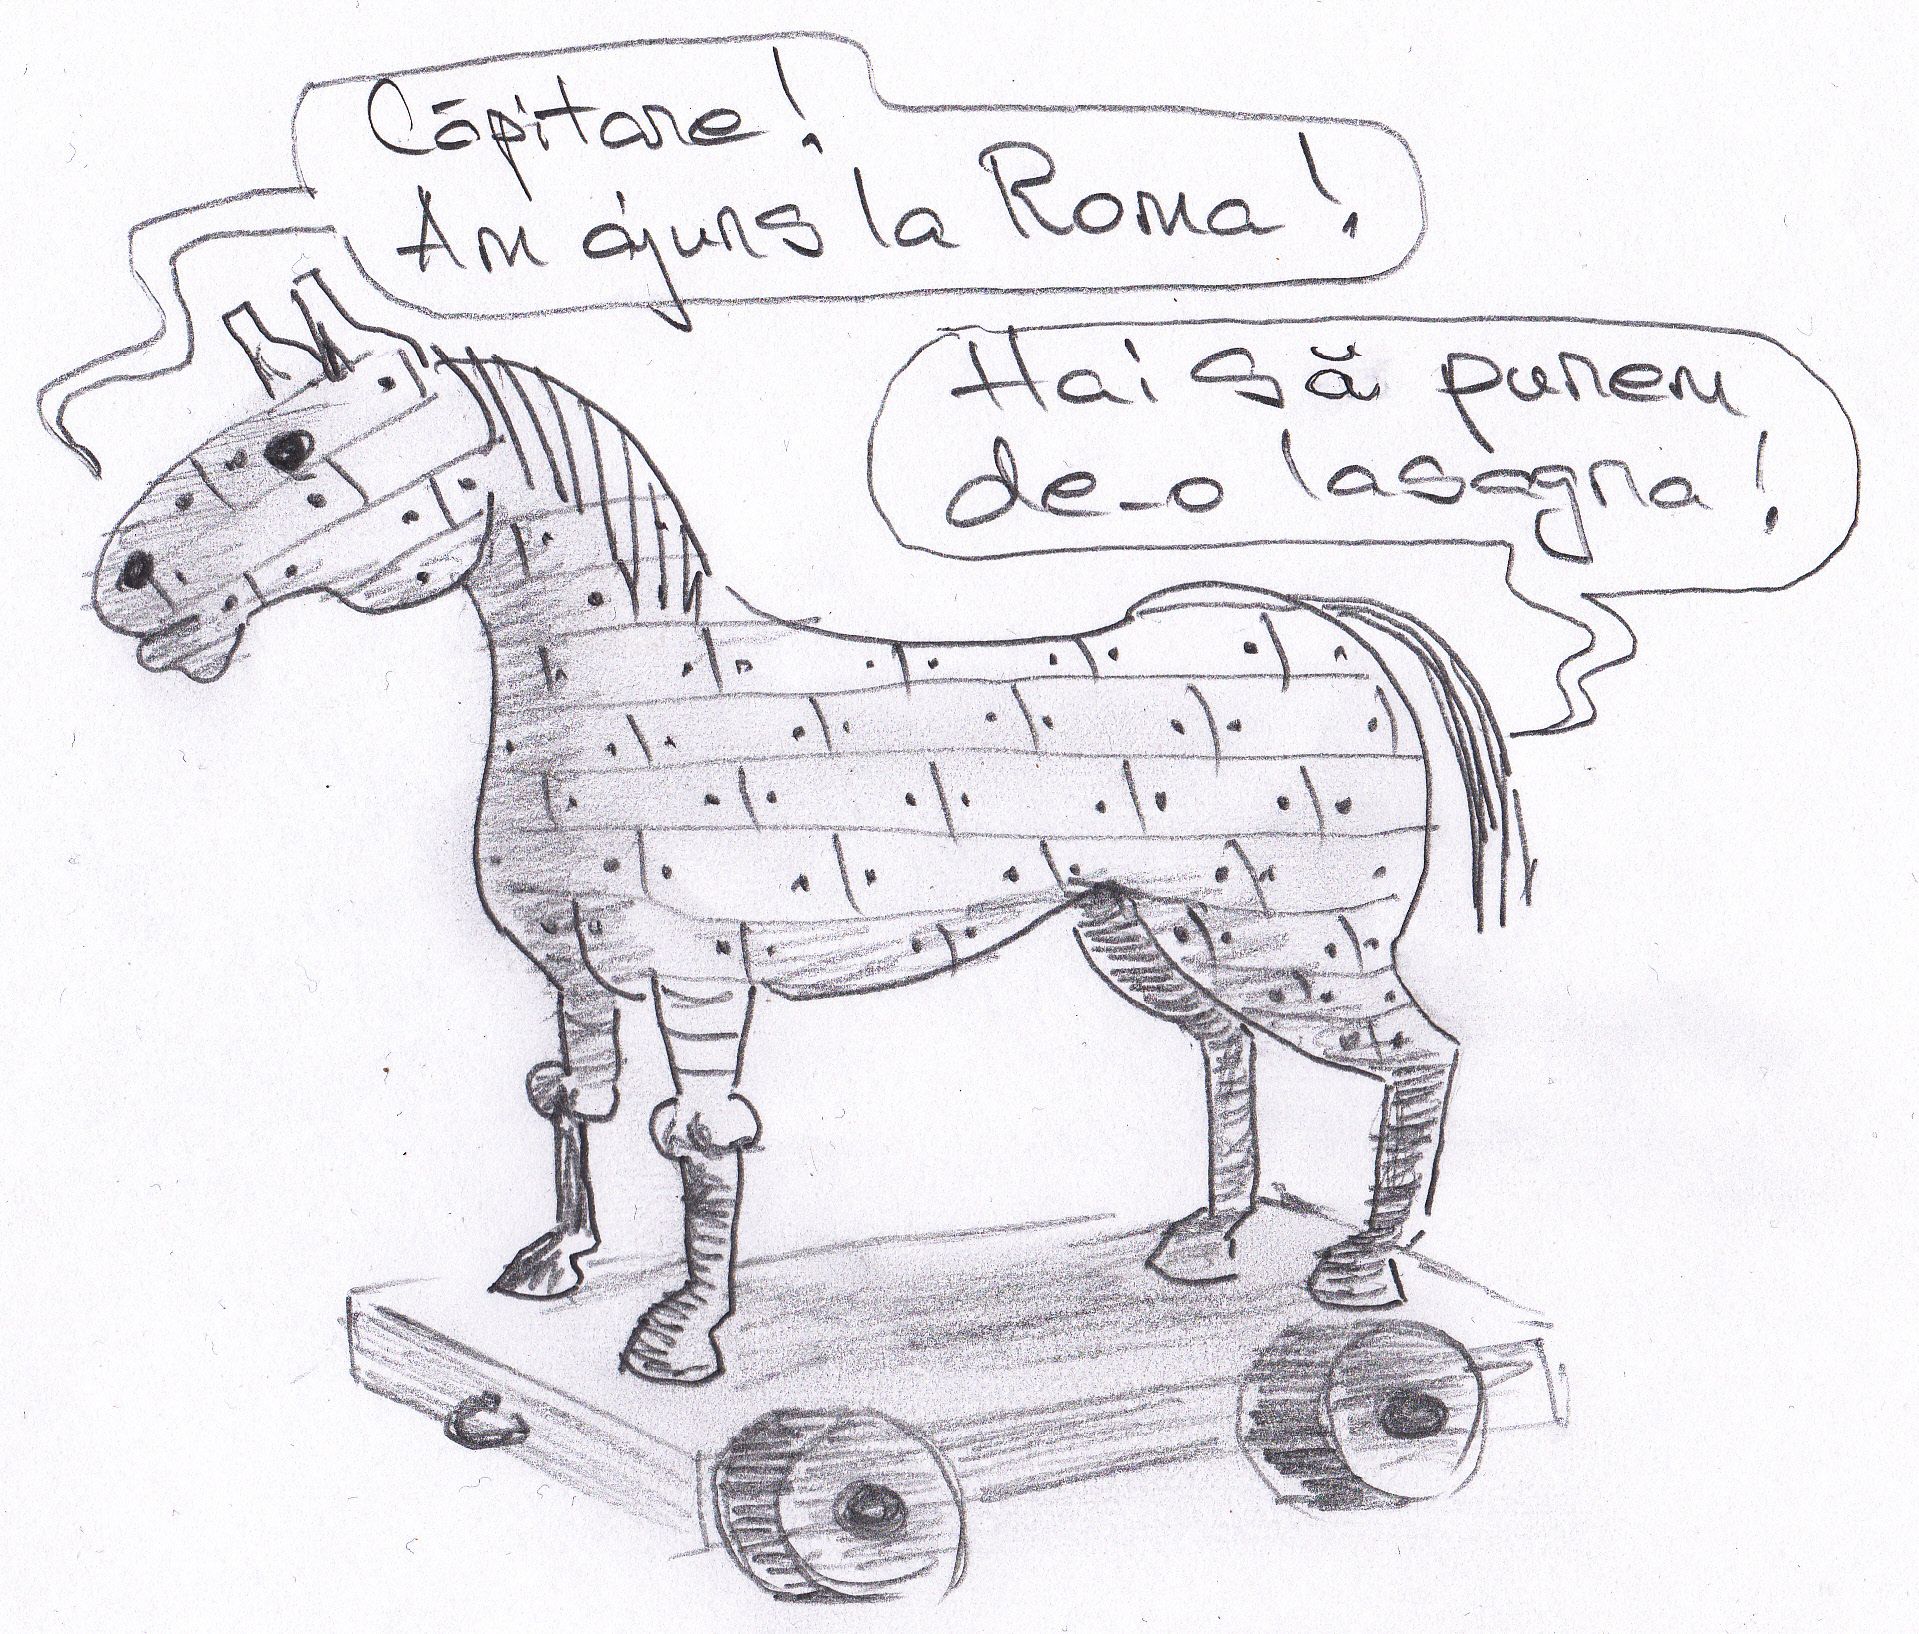 Căpitane!
Am ajuns la Roma!
Hai să punem
de-o lasagna!